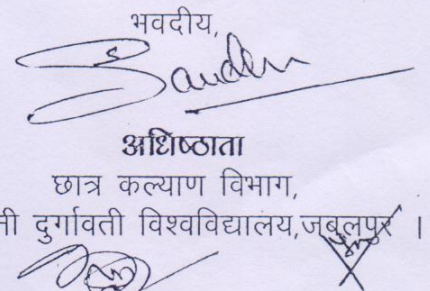 भवदीय,
अधिष्ठाता
छात्र कल्याण विभाग,
नी दुर्गावती विश्वविद्यालय,जबलपुर ।